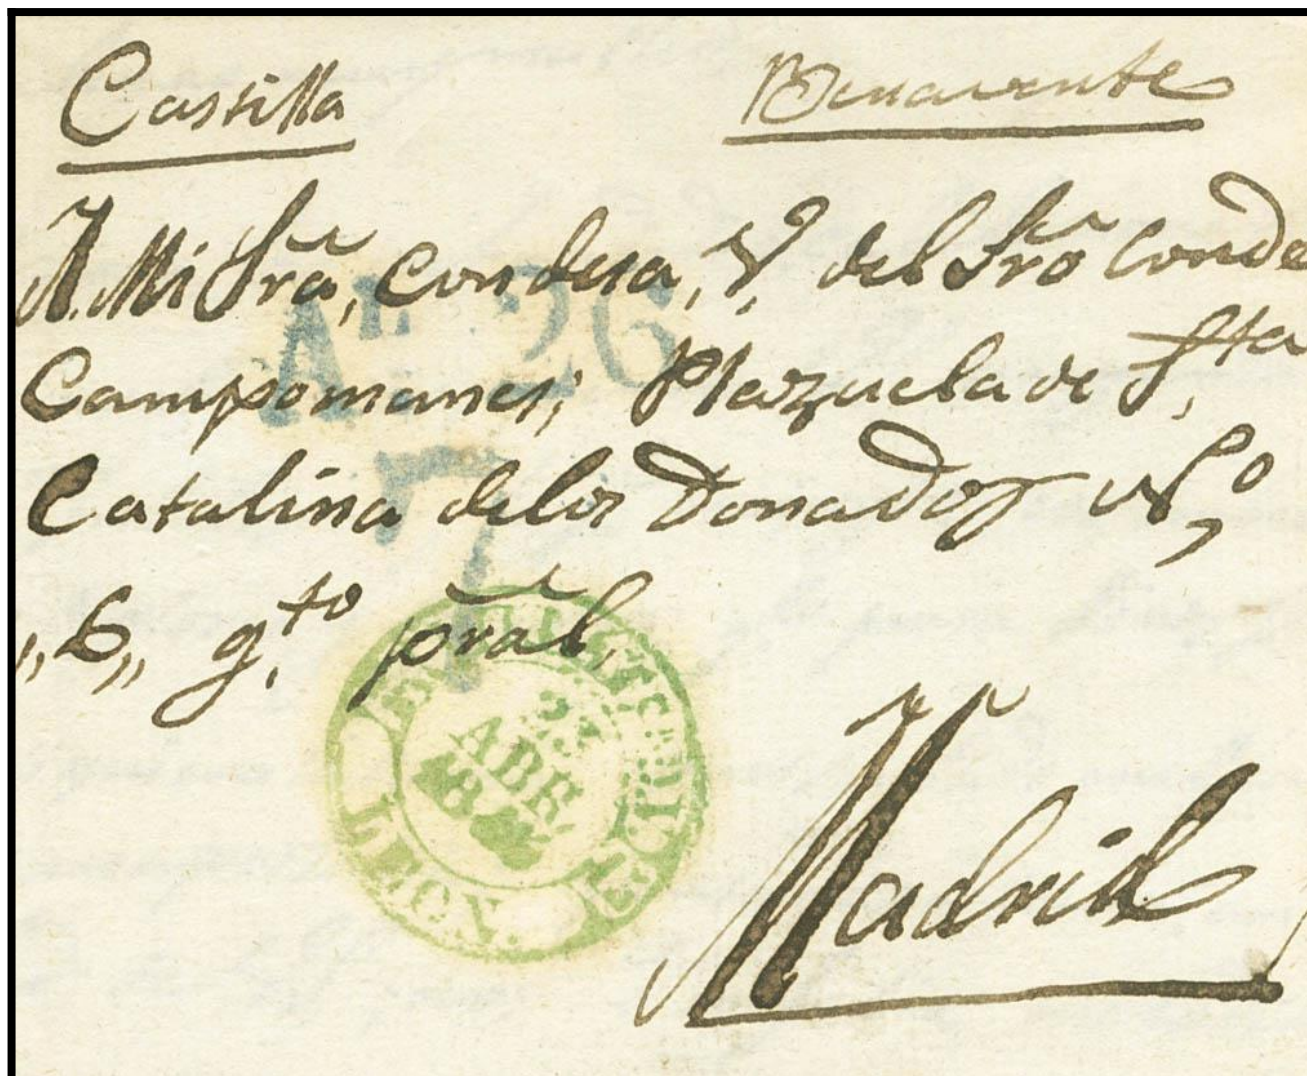 Castilla Benavente
A. Mi Srã, Condesa, V.ª del Srõ Conde
Campomanes; Plazuela de S,ta
Catalina delos Donados N,º
"6,, q,to prãl,
Madrid
An 26
7
LEON.
ABR.